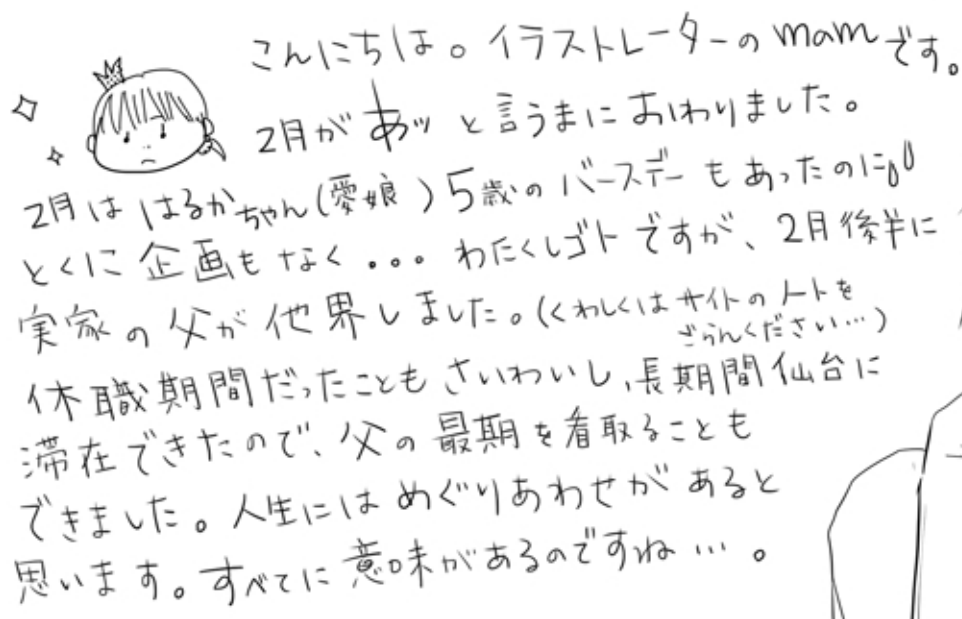 こんにちは。イラストレーターのmamです。
2月があッと言うまにおわりました。
2月ははるかちゃん(愛娘)5歳のバースデーもあったのに
とくに企画もなく...わたくしゴトですが、2月後半に
実家の父が他界しました。(くわしくはサイトのノートを
ごらんください…)
休職期間だったこともさいわいし、長期間仙台に
滞在できたので、父の最期を看取ることも
できました。人生にはめぐりあわせがあると
思います。すべてに意味があるのですね…。